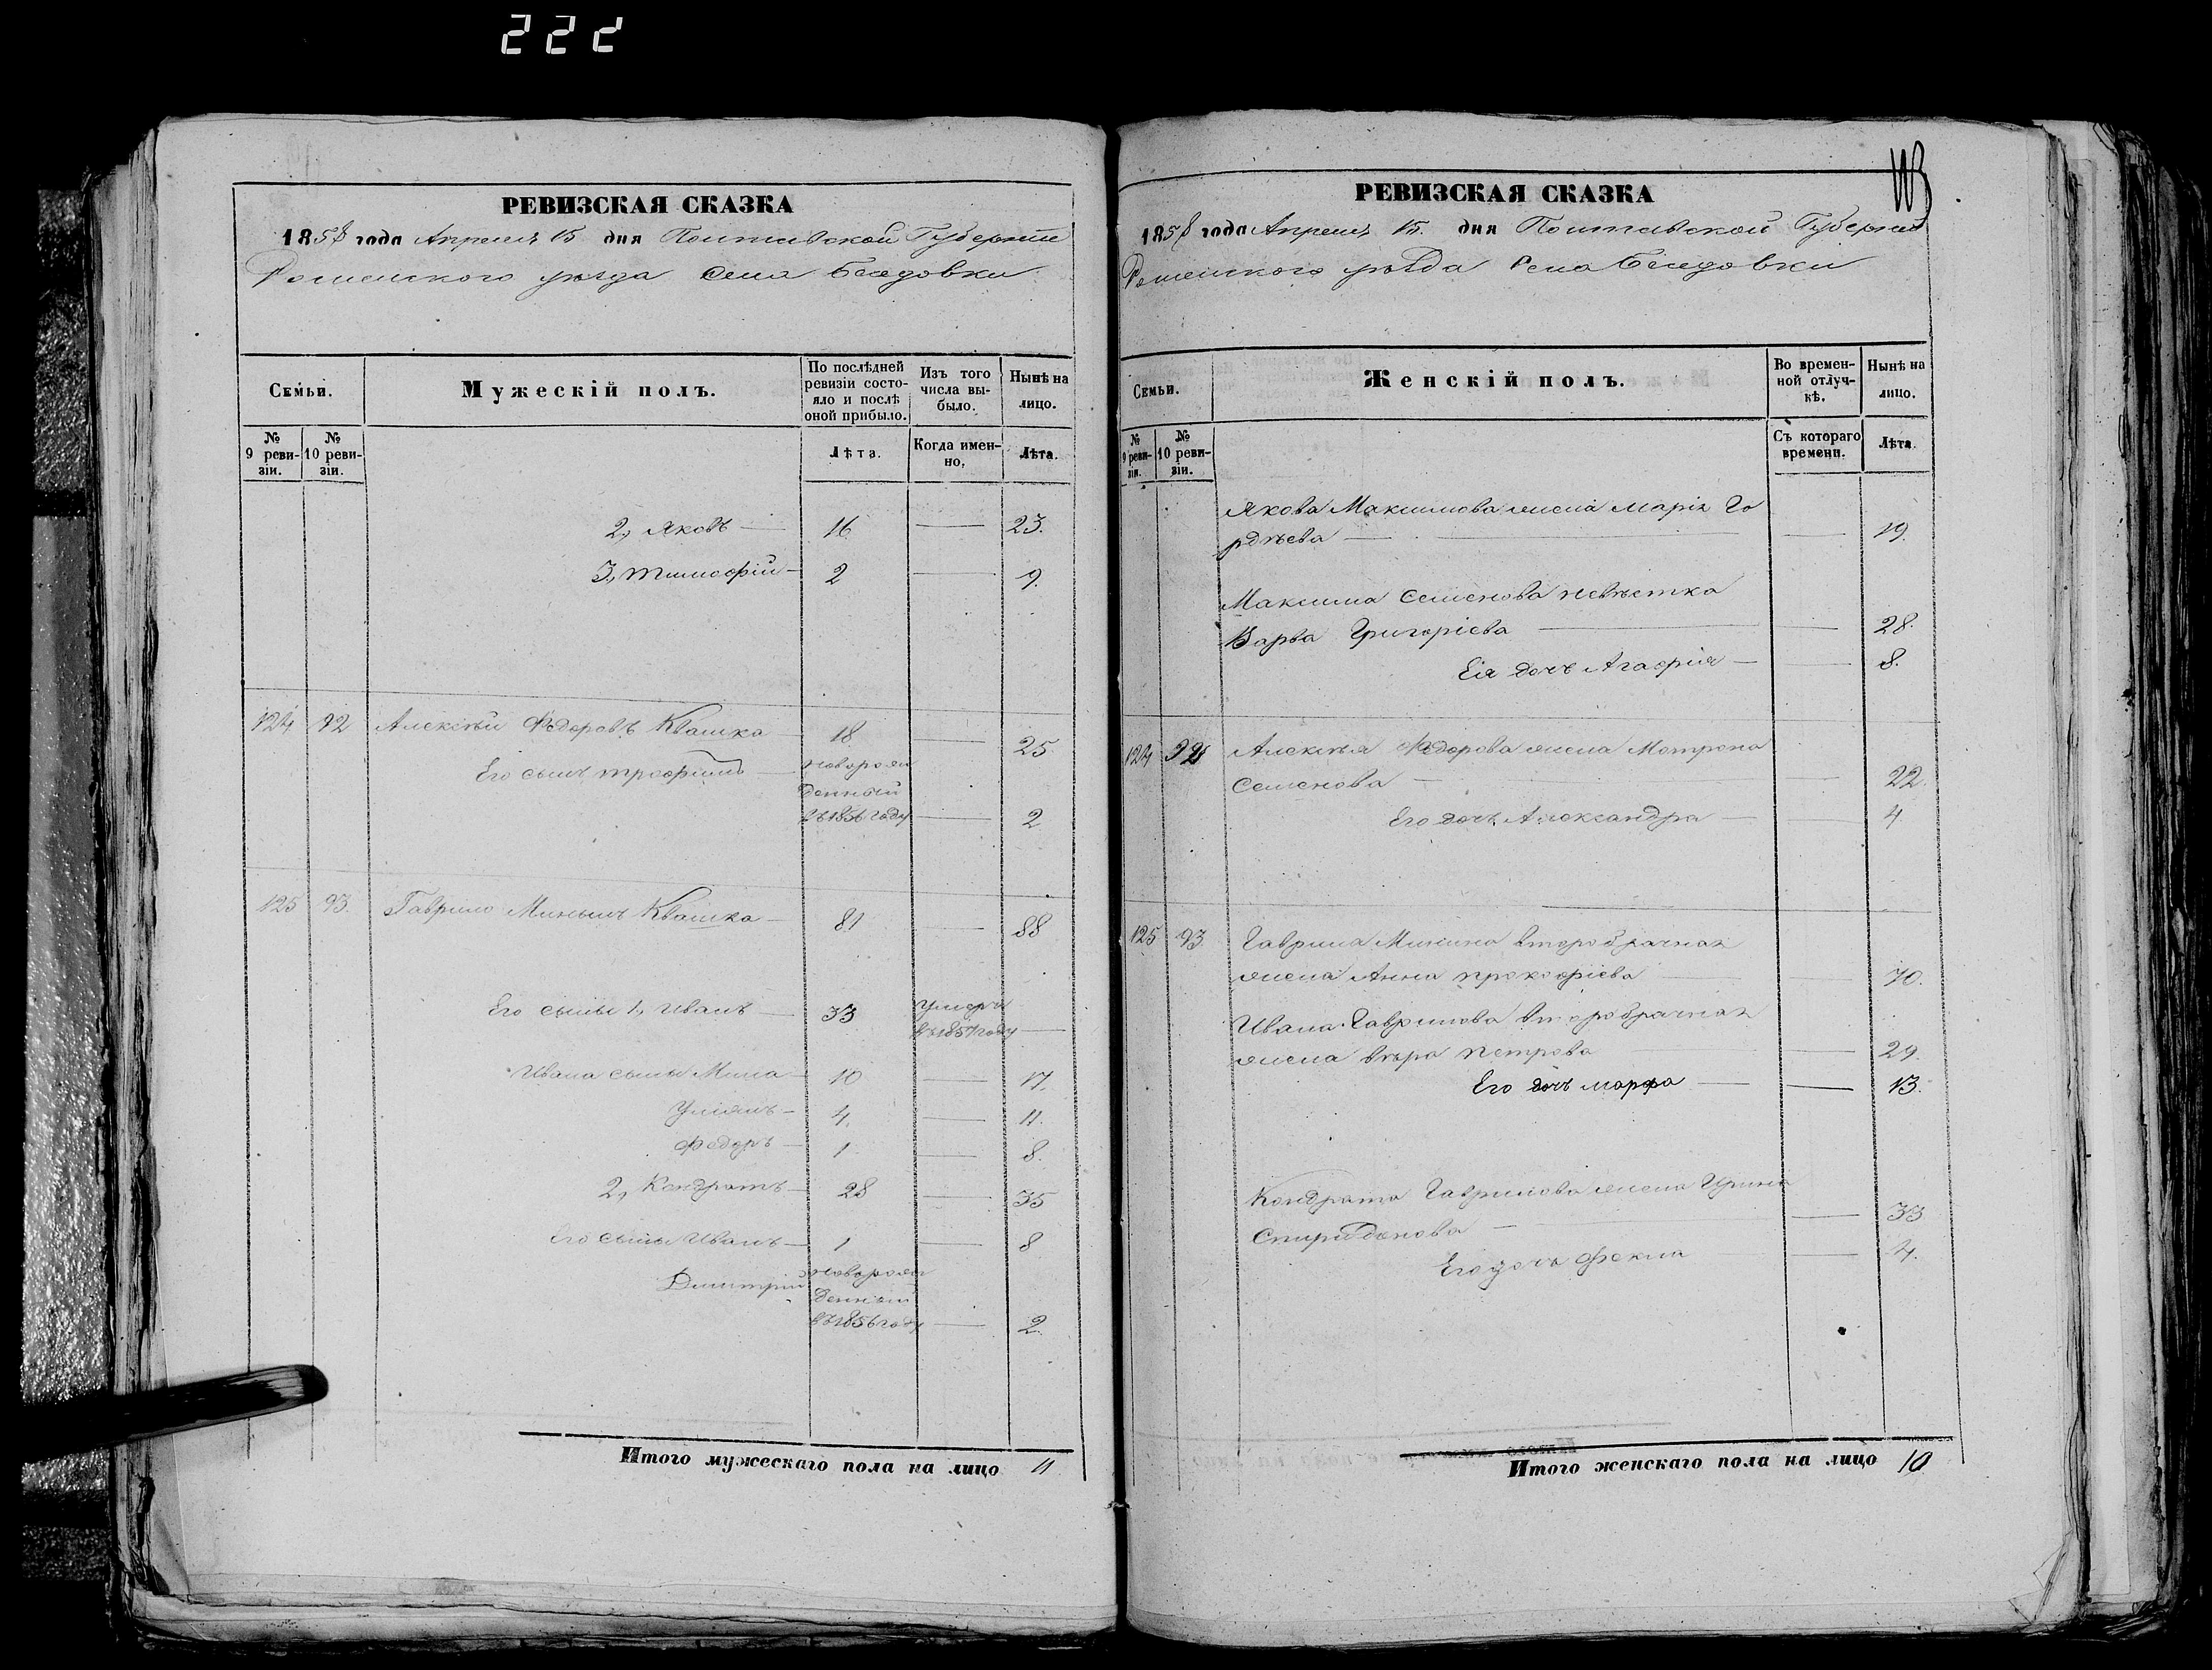 222
РЕВИЗСКАЯ СКАЗКА
1858 года Апреля 15 дня Полтавской Губернии
Роменского уѣзда села Беседовки
Семьи.
Мужескій полъ.
По послѣдней ревизіи состояло и послѣ оной прибыло.
Изъ того числа выбыло.
Нынѣ на лицо.
№ 9 ревизіи.
№ 10 ревизіи.
Лѣта.
Когда именно.
Лѣта.
2, Яковъ — 16 — 23.
3, Тимофій — 2 — 9.
124 92 Алексѣй Федоровъ Квашка — 18 — 25
Его сынъ Трофимъ — новорож
денный
въ 1856 году — 2
125 93. Гаврило Мининъ Квашка — 81 — 88
Его сыны 1, Иванъ — 33 умеръ
въ 1857 году —
Ивана сыны Мина — 10 — 17.
Уліянъ — 4. — 11.
Федоръ — 1 — 8.
2, Кондратъ — 28 — 35
Его сыны Иванъ — 1 — 8
Дмитрій новорож
денный
въ 1856 году — 2.
Итого мужескаго пола на лицо 11
113
РЕВИЗСКАЯ СКАЗКА
1858 года Апреля 15. дня Полтавской Губерніи
Роменского уѣзда села Беседовки
Семьи.
Женскій полъ.
Во временной отлучкѣ.
Нынѣ на лицо.
№ 9 ревизіи.
№ 10 ревизіи.
Съ котораго времени.
Лѣта.
Якова Максимова жена Марія Го
рдѣева — — 19.
Максима Семенова невѣстка
Варва Григоріева — — 28.
Ея дочь Агафія — — 8.
124 92 Алексѣя Федорова жена Мотрона
Семенова — — 22.
Его дочь Александра — — 4
125 93 Гаврила Минина второбрачная
жена Анна Прокофіева — 70.
Ивана Гаврилова второбрачная
жена Вѣра Петрова — — 29.
Его дочь Марфа — — 13.
Кондрата Гаврилова жена Ирина
Спиридонова — — 33
Его дочь Фекла — 4.
Итого женскаго пола на лицо 10